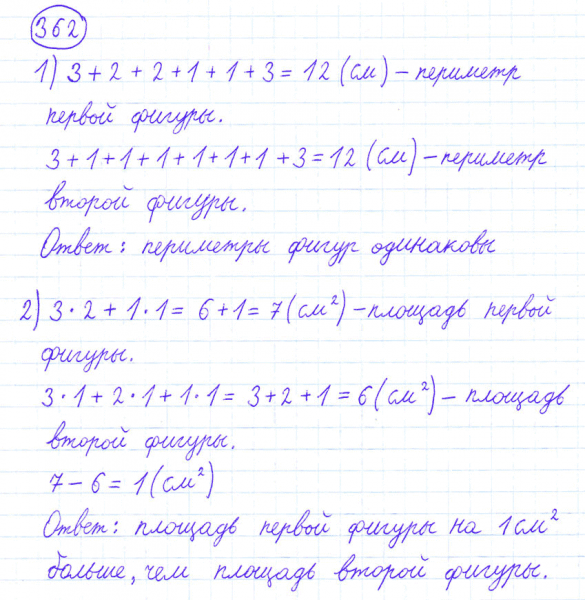 362
1) 3 + 2 + 2 + 1 + 1 + 3 = 12 (см) – периметр
первой фигуры.
3 + 1 + 1 + 1 + 1 + 1 + 1 + 3 = 12 (см) – периметр
второй фигуры.
Ответ: периметры фигур одинаковы
2) 3 · 2 + 1 · 1 = 6 + 1 = 7 (см²) – площадь первой
фигуры.
3 · 1 + 2 · 1 + 1 · 1 = 3 + 2 + 1 = 6 (см²) – площадь
второй фигуры.
7 – 6 = 1 (см²)
Ответ: площадь первой фигуры на 1 см²
больше, чем площадь второй фигуры.